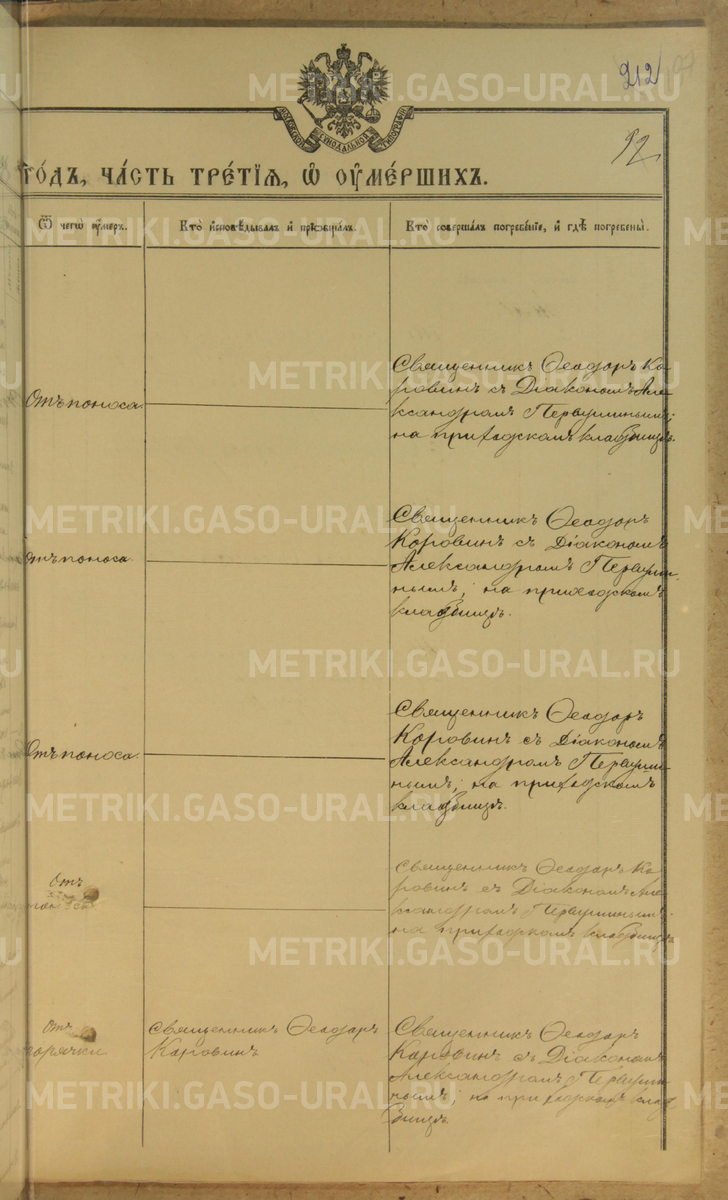 212
92
МОСКОВСКОЙ СѴНОДАЛЬНОЙ ТИПОГРАФІИ
го́дъ, ча́сть тре́тїѧ, ѡ҆ ᲂу҆ме́ршихъ.
Ѿ чегѡ̀ ᲂу҆́меръ.
Кто̀ и҆сповѣ́дывалъ и҆ прїѡбща́лъ.
Кто̀ соверша́лъ погребе́нїе, и҆ гдѣ̀ погребены̀.
Отъ поноса.
Священникъ Ѳеодоръ Ко
ровинъ съ Діакономъ Але
ксандромъ Первушинымъ;
на приходскомъ кладбищѣ.
Отъ поноса.
Священникъ Ѳеодоръ
Коровинъ съ Діакономъ
Александромъ Первуши
нымъ; на приходскомъ
кладбищѣ.
Отъ поноса.
Священникъ Ѳеодоръ
Коровинъ съ Діакономъ
Александромъ Первуши
нымъ; на приходскомъ
кладбищѣ.
Отъ
поноса
Священникъ Ѳеодоръ Ко
ровинъ съ Діакономъ Але
ксандромъ Первушинымъ;
на приходскомъ кладбищѣ
Отъ
горячки
Священникъ Ѳеодоръ
Коровинъ
Священникъ Ѳеодоръ
Коровинъ съ Діакономъ
Александромъ Первуши
нымъ; на приходскомъ клад
бищѣ
METRIKI.GASO-URAL.RU